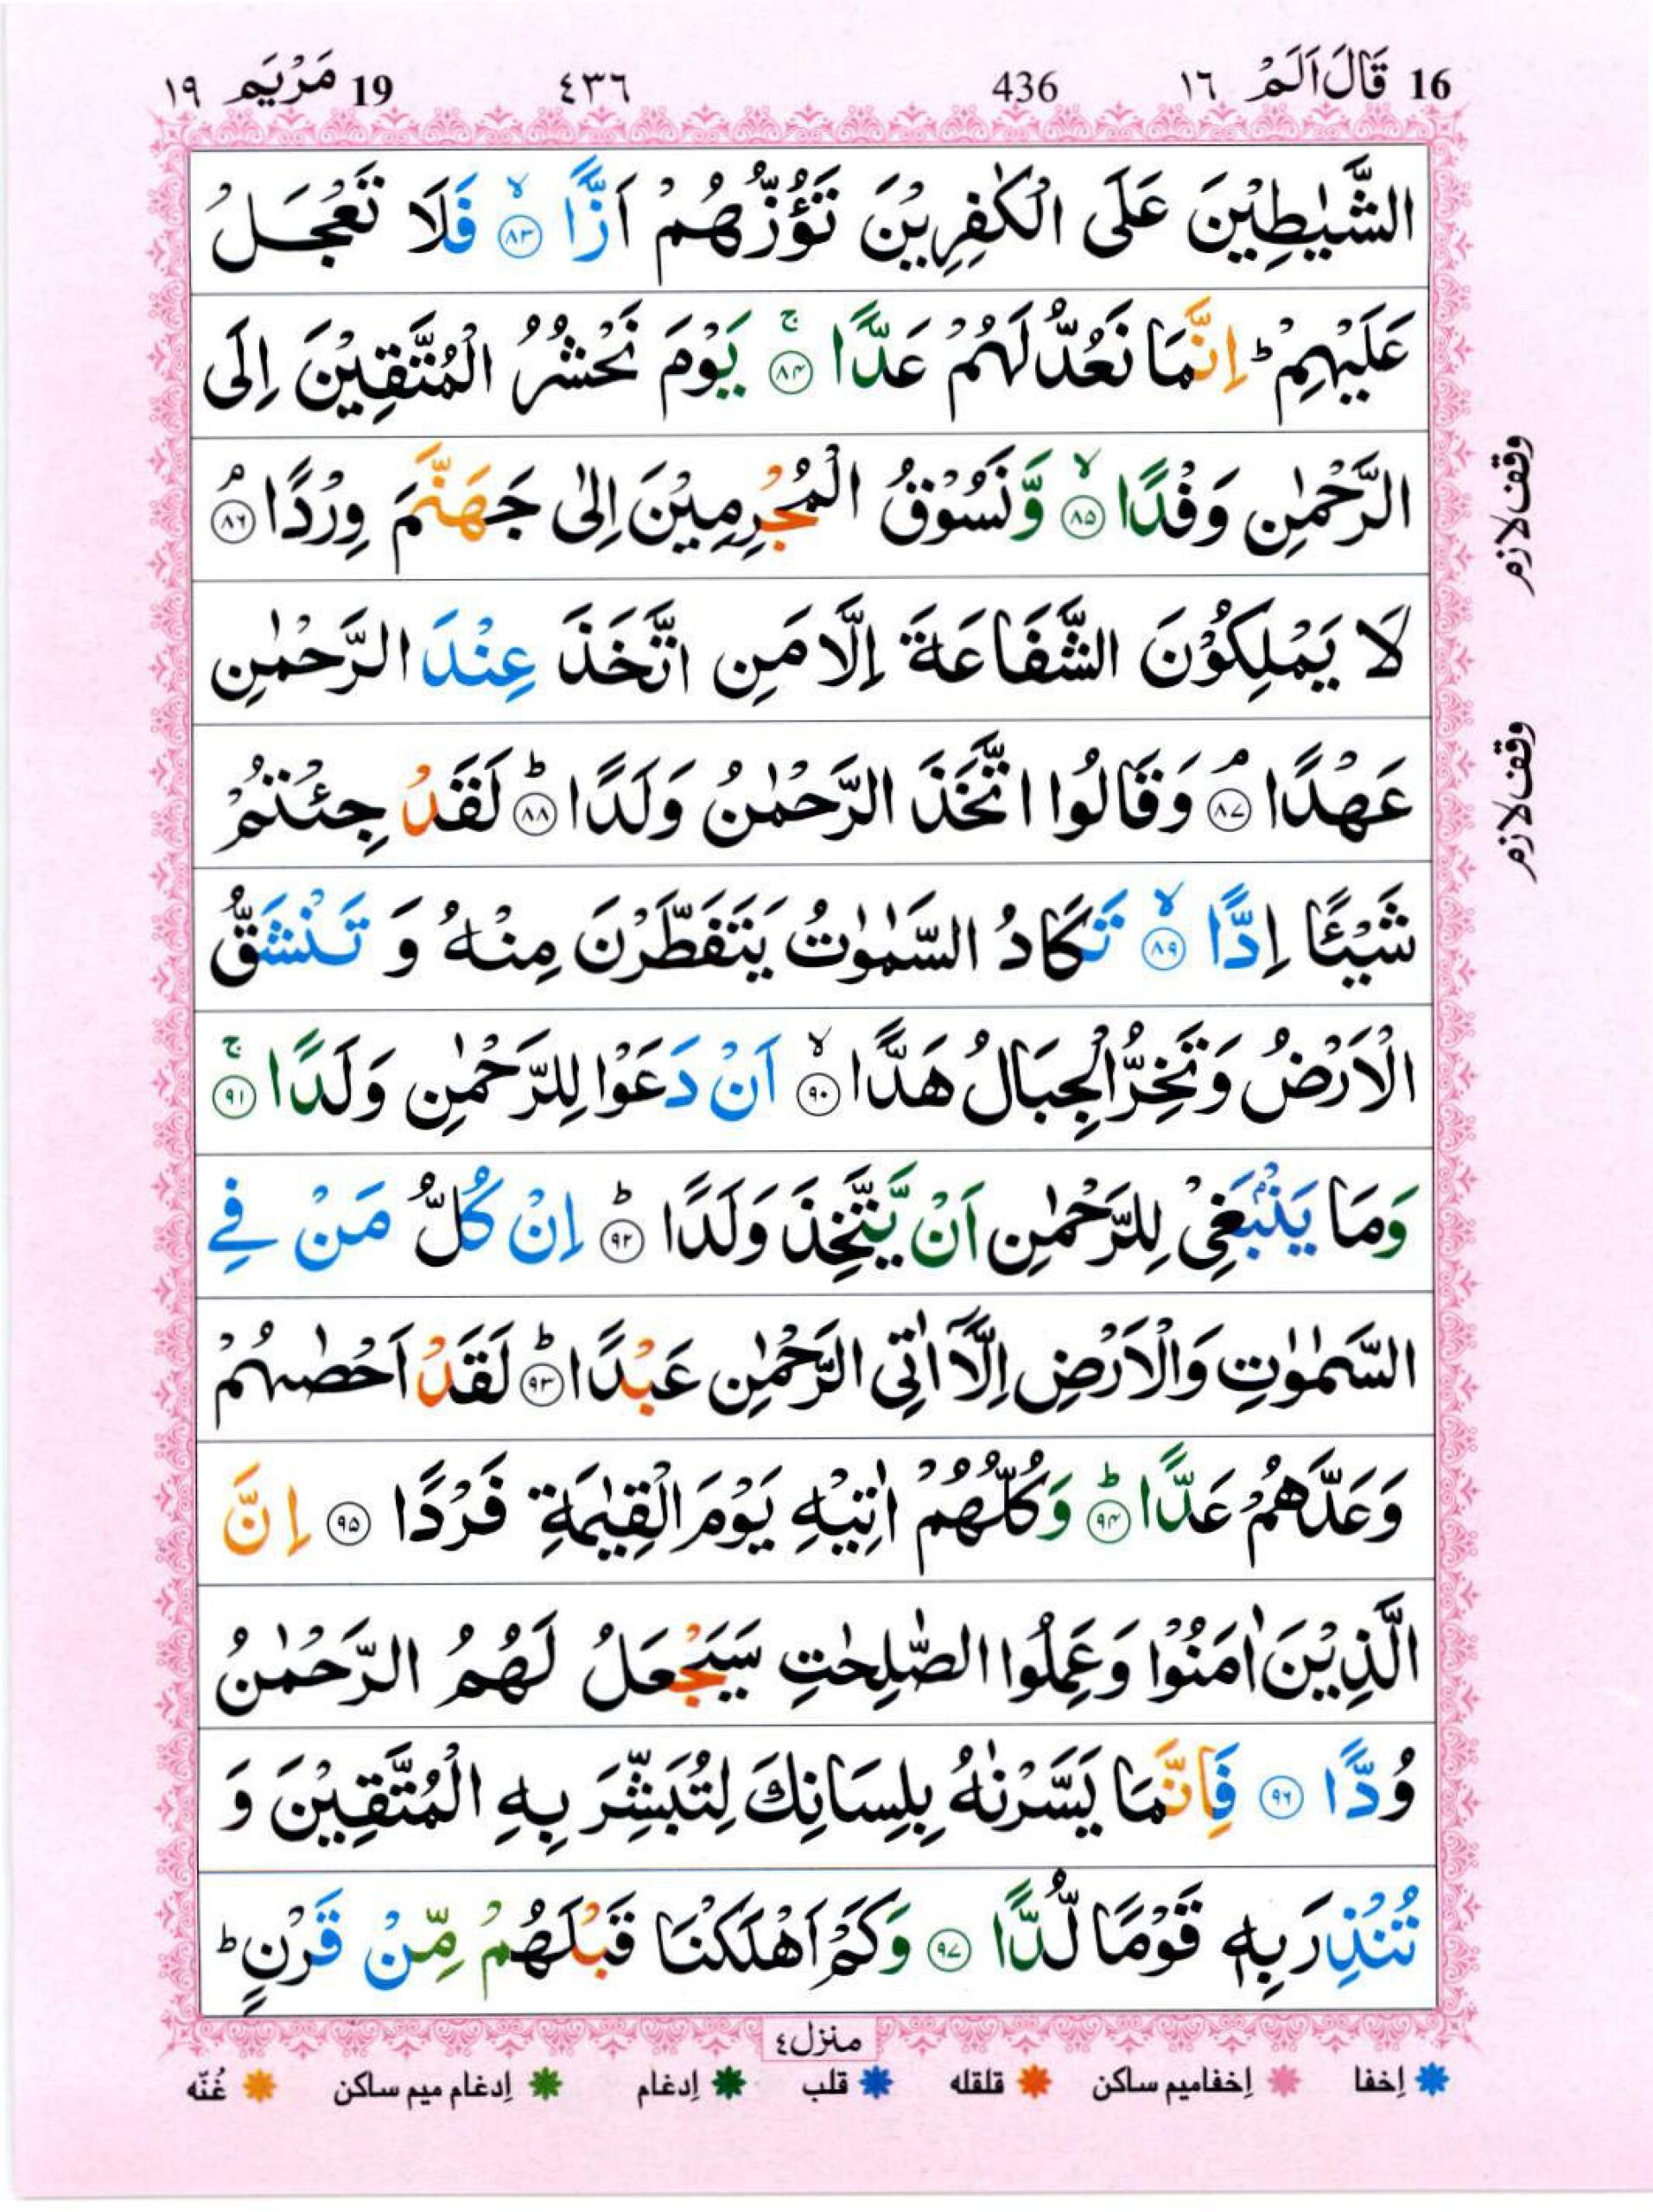 16 قَالَ اَلَمْ ١٦ 436 ٤٣٦ 19 مَرْيَم ١٩
الشَّيٰطِيْنَ عَلَى الْكٰفِرِيْنَ تَؤُزُّهُمْ اَزًّا ۙ‏﴿۸۳﴾ فَلَا تَعْجَلْ
عَلَيْهِمْ ؕ اِنَّمَا نَعُدُّ لَهُمْ عَدًّا ۚ‏﴿۸۴﴾ يَوْمَ نَحْشُرُ الْمُتَّقِيْنَ اِلَى
الرَّحْمٰنِ وَفْدًا ۙ‏﴿۸۵﴾ وَّنَسُوْقُ الْمُجْرِمِيْنَ اِلٰى جَهَنَّمَ وِرْدًا ۘ‏﴿۸۶﴾
وقف لازم
لَا يَمْلِكُوْنَ الشَّفَاعَةَ اِلَّا مَنِ اتَّخَذَ عِنْدَ الرَّحْمٰنِ
عَهْدًا ۘ‏﴿۸۷﴾ وَقَالُوا اتَّخَذَ الرَّحْمٰنُ وَلَدًا ؕ‏﴿۸۸﴾ لَقَدْ جِئْتُمْ
وقف لازم
شَيْئًا اِدًّا ۙ‏﴿۸۹﴾ تَكَادُ السَّمٰوٰتُ يَتَفَطَّرْنَ مِنْهُ وَ تَنْشَقُّ
الْاَرْضُ وَتَخِرُّ الْجِبَالُ هَدًّا ۙ‏﴿۹۰﴾ اَنْ دَعَوْا لِلرَّحْمٰنِ وَلَدًا ۚ‏﴿۹۱﴾
وَمَا يَنْۢبَغِىْ لِلرَّحْمٰنِ اَنْ يَّتَّخِذَ وَلَدًا ؕ‏﴿۹۲﴾ اِنْ كُلُّ مَنْ فِى
السَّمٰوٰتِ وَالْاَرْضِ اِلَّاۤ اٰتِى الرَّحْمٰنِ عَبْدًا ؕ‏﴿۹۳﴾ لَقَدْ اَحْصٰٮهُمْ
وَعَدَّهُمْ عَدًّا ؕ‏﴿۹۴﴾ وَكُلُّهُمْ اٰتِيْهِ يَوْمَ الْقِيٰمَةِ فَرْدًا ‏﴿۹۵﴾ اِنَّ
الَّذِيْنَ اٰمَنُوْا وَعَمِلُوا الصّٰلِحٰتِ سَيَجْعَلُ لَهُمُ الرَّحْمٰنُ
وُدًّا ‏﴿۹۶﴾ فَاِنَّمَا يَسَّرْنٰهُ بِلِسَانِكَ لِتُبَشِّرَ بِهِ الْمُتَّقِيْنَ وَ
تُنْذِرَ بِهٖ قَوْمًا لُّدًّا ‏﴿۹۷﴾ وَكَمْ اَهْلَكْنَا قَبْلَهُمْ مِّنْ قَرْنٍ ؕ
منزل ٤
اِخفا اِخفامیم ساکن قلقله قلب اِدغام اِدغام میم ساکن غُنّه